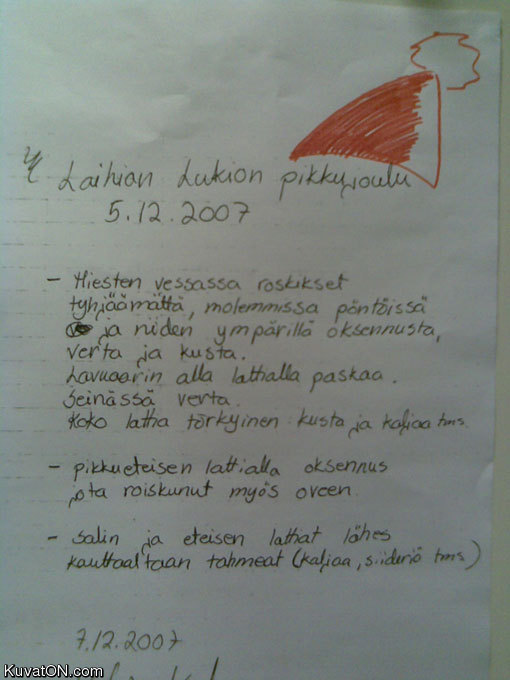 Laihian Lukion pikkujoulu
5.12.2007
- Miesten vessassa roskikset
tyhjäämättä, molemmissa pöntöissä
ja niiden ympärillä oksennusta,
verta ja kusta.
Lavuaarin alla lattialla paskaa.
Seinässä verta.
Koko lattia törkyinen kusta ja kaljaa tms.
- pikkueteisen lattialla oksennus
jota roiskunut myös oveen.
- Salin ja eteisen lattiat lähes
kauttaaltaan tahmeat (kaljaa, siideriä tms)
7.12.2007
KuvatON.com